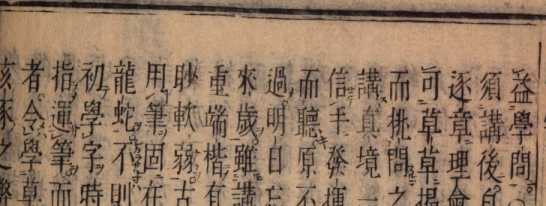 益學問
須講後自
逐章理會
可草草揭
而挑問之
講真境一
信手發揮
而聽原不
過明日忘
來歲雖講
重端楷有
耿軟弱古
用筆固在
龍蛇不則
初學字時
指運筆而
者令學草